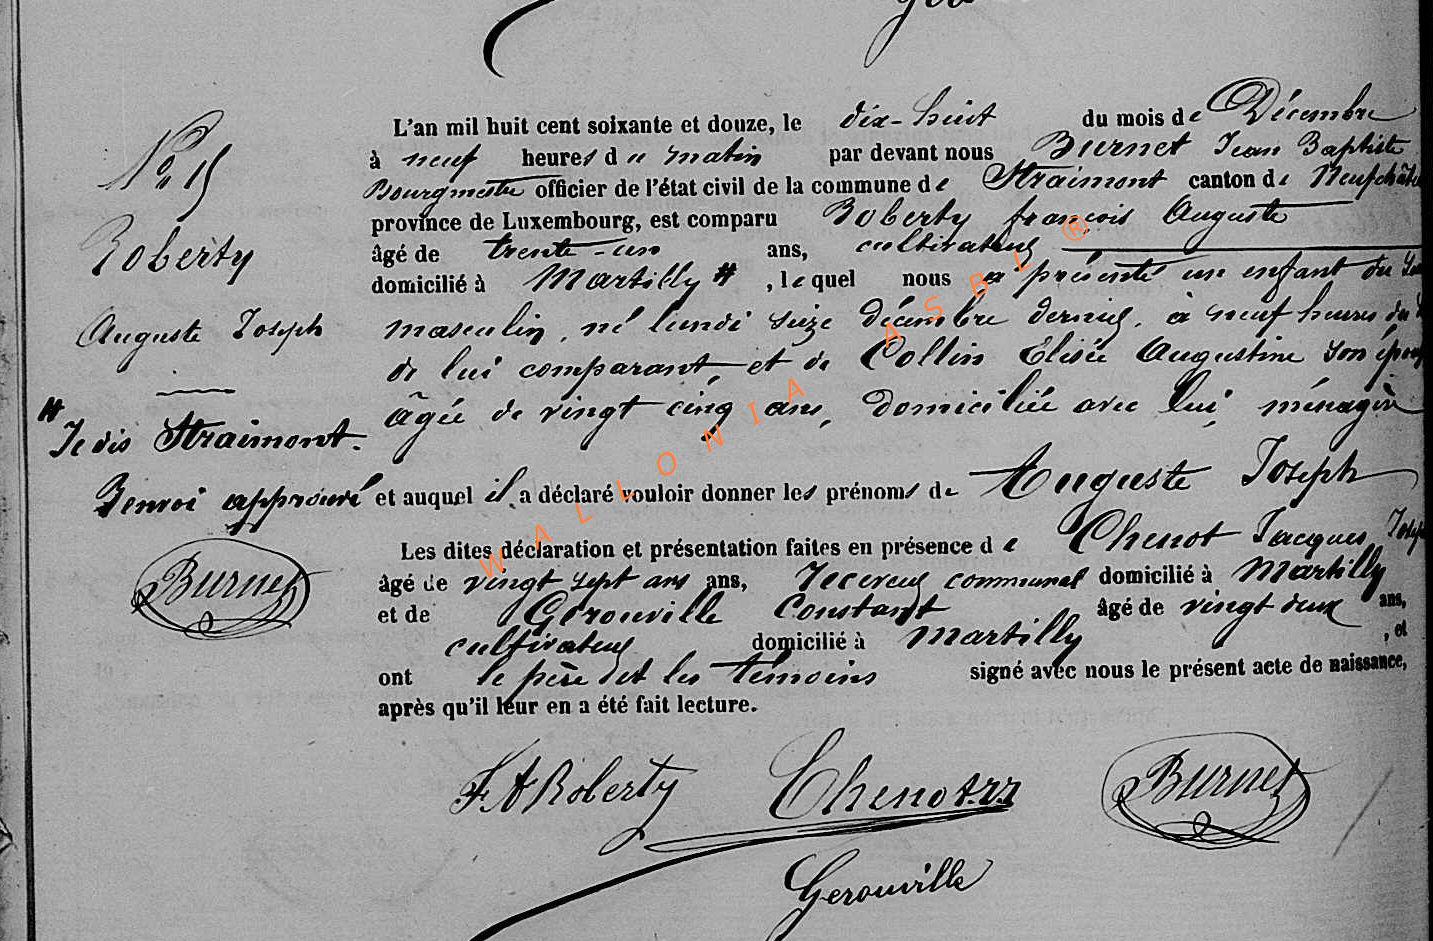 N° 15
Roberty
Auguste Joseph
# Je dis Straimont.
Renvoi approuvé
Burnet
L'an mil huit cent soixante et douze, le dix-huit du mois de Décembre
à neuf heures du matin par devant nous Burnet Jean Baptiste
Bourgmestre officier de l'état civil de la commune de Straimont canton de
province de Luxembourg, est comparu Roberty françois Auguste
âgé de trente-un ans, cultivateur
domicilié à Martilly #, lequel nous a présenté un enfant du
masculin, né lundi seize décembre dernier, à neuf heures du
de lui comparant, et de Collin Elisée Augustine son
âgée de vingt cinq ans, domiciliée avec lui, ménagère
et auquel il a déclaré vouloir donner les prénoms de Auguste Joseph
Les dites déclaration et présentation faites en présence de Chenot Jacques
âgé de vingt sept ans ans, receveur communal domicilié à Martilly
et de Gerouville Constant âgé de vingt deux ans,
cultivateur domicilié à Martilly, et
ont le père et les témoins signé avec nous le présent acte de naissance,
après qu'il leur en a été fait lecture.
F. A Roberty Chenot Burnet
Gerouville
WALLONIA ASBL ®